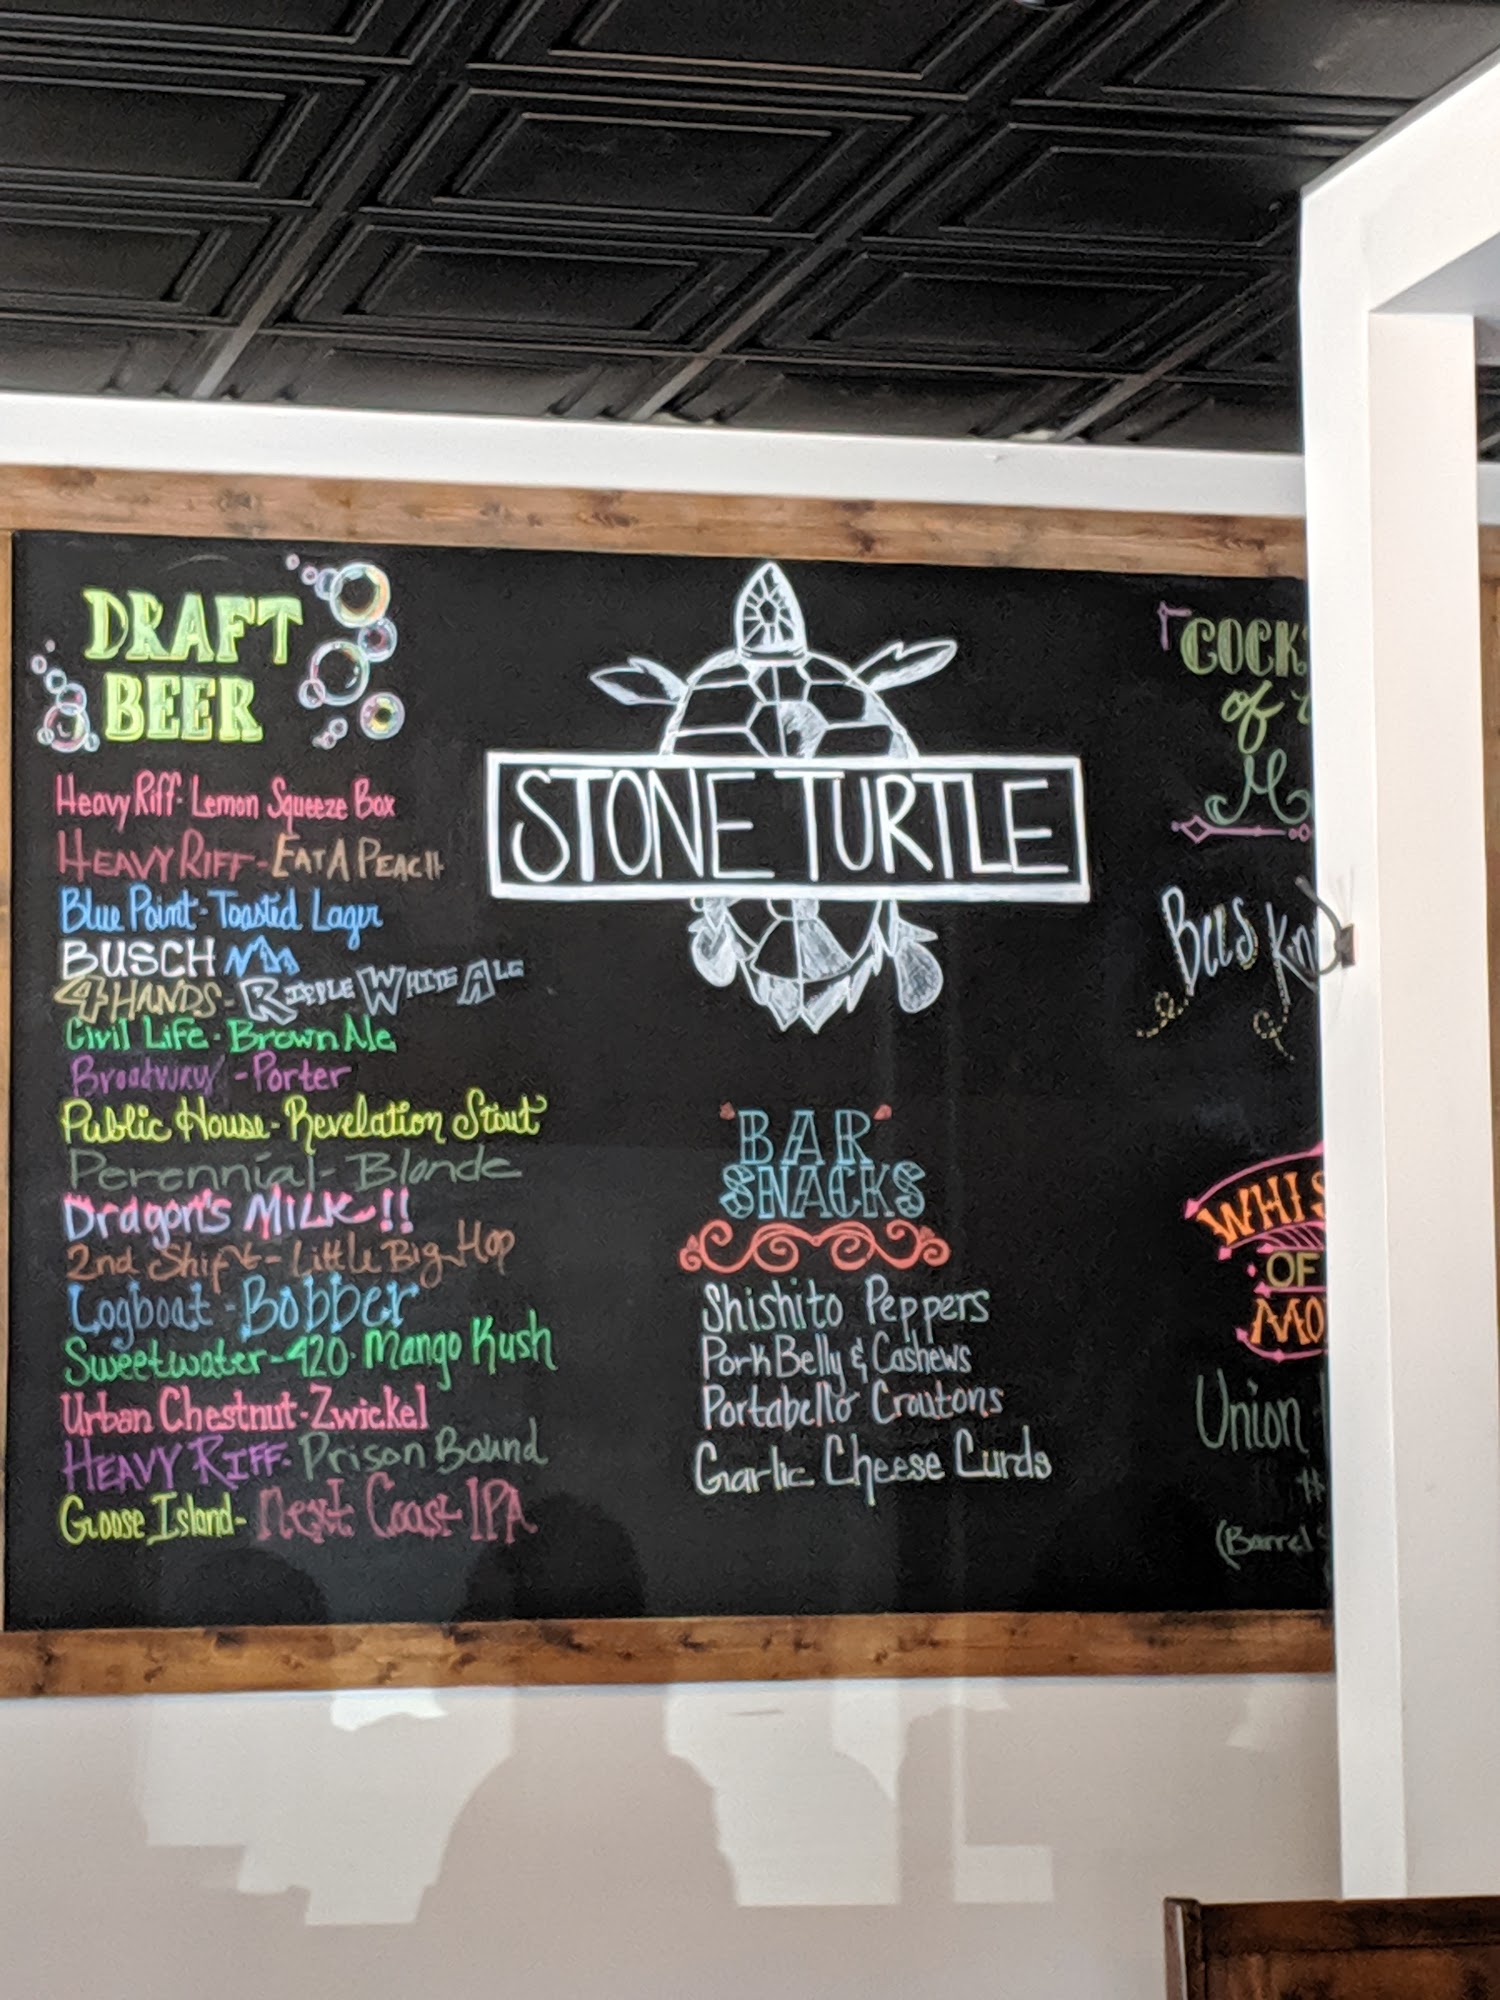 DRAFT
BEER
Heavy Riff- Lemon Squeeze Box
HEAVY RIFF - EAT A PEACH
Blue Point - Toasted Lager
BUSCH
4 HANDS - RIPPLE WHITE ALE
Civil Life - Brown Ale
Broadway - Porter
Public House - Revelation Stout
Perennial - Blonde
Dragon's MILK!!
2nd Shift - Little Big Hop
Logboat - Bobber
Sweetwater - 420 - Mango Kush
Urban Chestnut - Zwickel
HEAVY RIFF - Prison Bound
Goose Island - Next Coast IPA
STONE TURTLE
BAR
SNACKS
Shishito Peppers
Pork Belly & Cashews
Portabello Croutons
Garlic Cheese Curds
COCK
of
M
Bees Kn
WHIS
OF
MO
Union
(Barrel